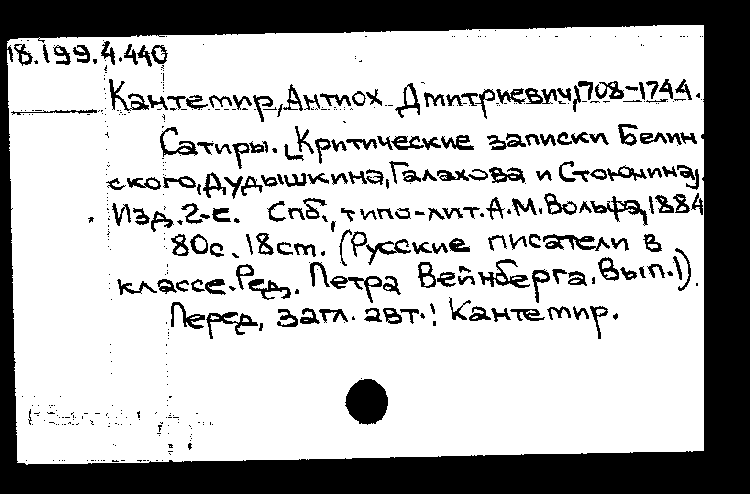 18.199.4.440
Кантемир, Антиох Дмитриевич, 1708-1744.
Сатиры. [Критические записки Белин-
ского, Дудышкина, Галахова и Стоюнина].
Изд. 2-е. Спб., типо-лит. А.М. Вольфа, 1884
80с. 18см. (Русские писатели в
классе. Ред. Петра Вейнберга. Вып.1).
Перед загл. авт.: Кантемир.